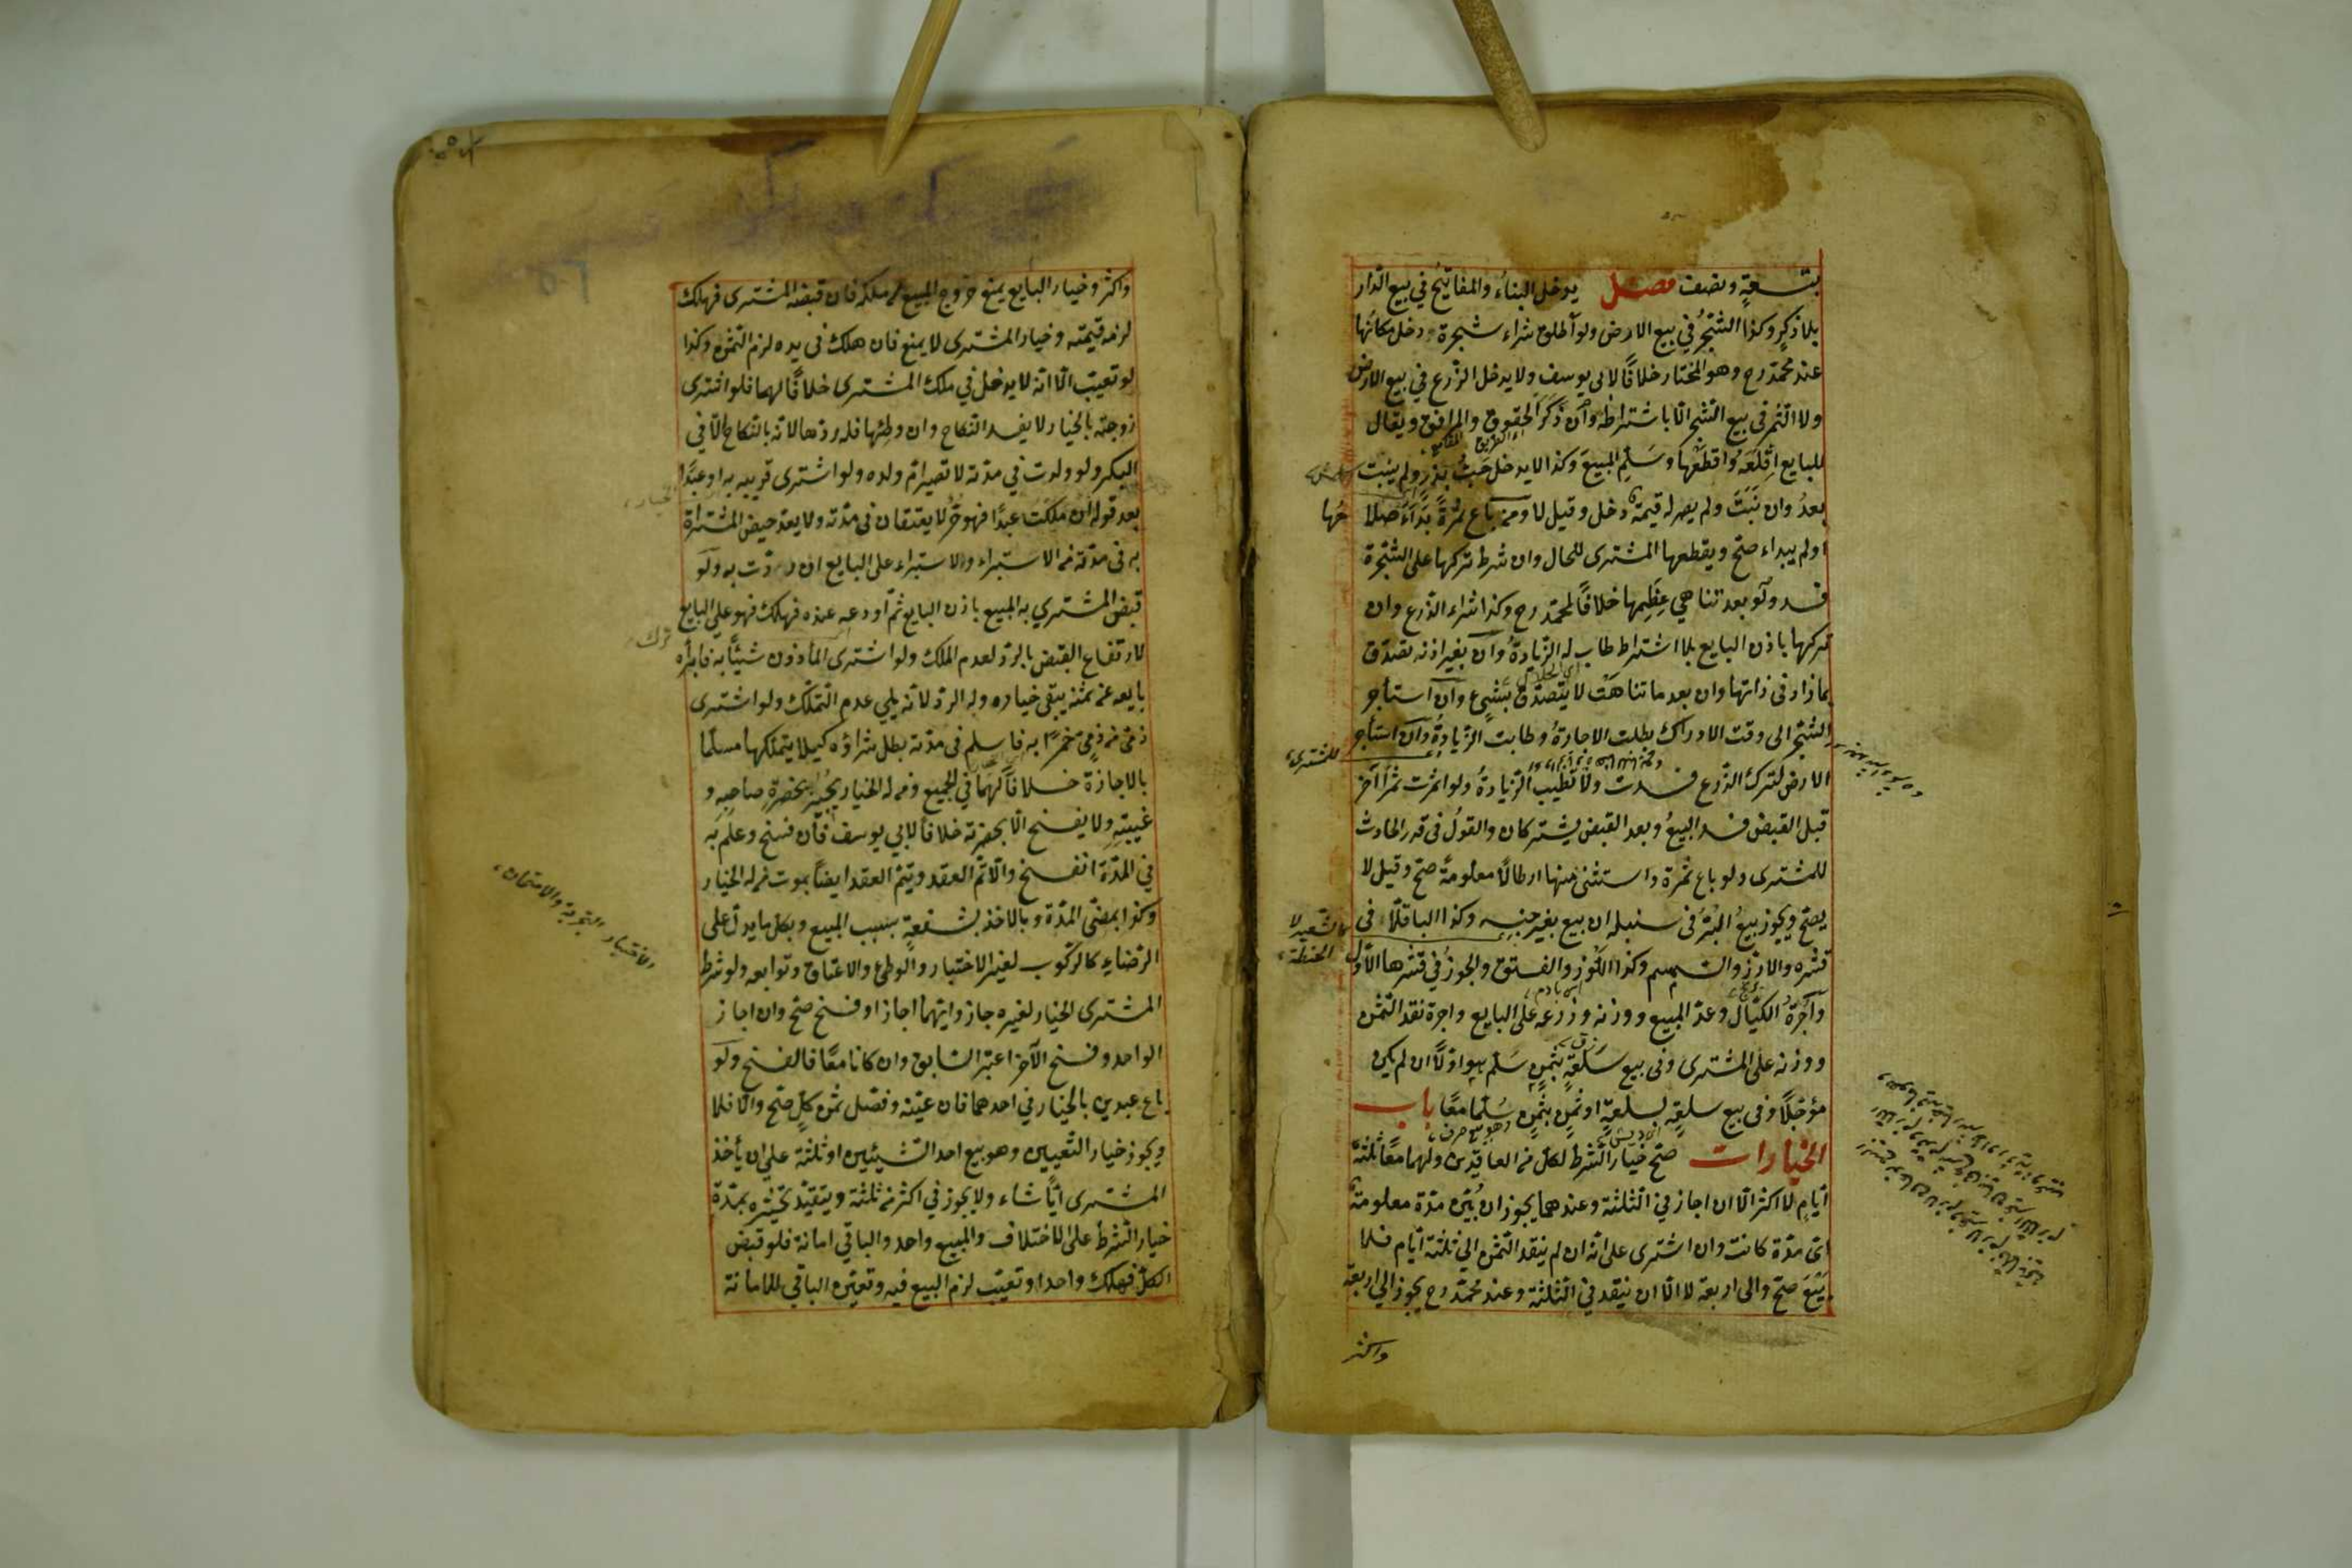 بتسعة ونصف فصل يدخل البناء والمفاتيح في بيع الدار
بلا ذكر وكذا الشجر في بيع الارض ولو اطلق شراء شجرة دخل مكانها
عند محمد رح وهو المختار خلافًا لابي يوسف ولا يدخل الزرع في بيع الارض
ولا الثمر في بيع الشجر الا باشتراطه وان ذكر الحقوق والمرافق ويقال
للبايع اقلعه واقطعها وسلم المبيع وكذا لا يدخل حب بذر ولم ينبت
بعد وان نبت ولم يصر له قيمة دخل وقيل لا ومن باع ثمرة بدا صلاحها
او لم يبداء صح ويقطعها المشترى للحال وان شرط تركها على الشجرة
فسد ولو بعد تناهي عظمها خلافًا لمحمد رح وكذا شراء الزرع وان
تركها باذن البايع بلا اشتراط طاب له الزيادة وان بغير اذنه تصدق
بما زاد في ذاتها وان بعد ما تناهت لا يتصدق بشيء وان استأجر
الشجر الى وقت الادراك بطلت الاجارة وطابت الزيادة وان استأجر
الارض لترك الزرع فسدت ولا تطيب الزيادة ولو اثمرت ثمرا آخر
قبل القبض فسد البيع وبعد القبض يشتركان والقول في قدر الحادث
للمشترى ولو باع ثمرة واستثنى منها ارطالًا معلومة صح وقيل لا
يصح ويجوز بيع البر في سنبله ان بيع بغير جنسه وكذا الباقلا في
قشره والارز والسمسم وكذا اللوز والفستق والجوز في قشرها الاول
واجرة الكيال وعد المبيع ووزنه وذرعه على البايع واجرة نقد الثمن
ووزنه على المشترى وفي بيع سلعة بثمن سلم هو اولًا ان لم يكن
مؤجلًا وفي بيع سلعة بسلعة او ثمن بثمن سلما معًا باب
الخيارات صح خيار الشرط لكل من العاقدين ولهما معًا ثلثة
ايام لا اكثر الا ان اجاز في الثلثة وعندهما يجوز ان بين مدة معلومة
اى مدة كانت وان اشترى على انه ان لم ينقد الثمن الى ثلثة ايام فلا
بيع صح والى اربعة لا الا ان ينقد في الثلثة وعند محمد رح يجوز الى اربعة
واكثر
للمشترى
الحنطة
واكثر وخيار البايع يمنع خروج المبيع عن ملكه فان قبضه المشترى فهلك
لزمه قيمته وخيار المشترى لا يمنع فان هلك في يده لزم الثمن وكذا
لو تعيب الا انه لا يدخل في ملك المشترى خلافًا لهما فلو اشترى
زوجته بالخيار لا يفسد النكاح وان وطئها فله ردها لانه بالنكاح الا في
البكر ولو ولدت في مدته لا تصير ام ولده ولو اشترى قريبه به او عبدًا
بعد قوله ان ملكت عبدًا فهو حر لا يعتقان في مدته ولا يعد حيض المشتراة
به في مدته من الاستبراء ولا استبراء على البايع ان ردت به ولو
قبض المشتري به المبيع باذن البايع ثم اودعه عنده فهلك فهو على البايع
لارتفاع القبض بالرد لعدم الملك ولو اشترى المأذون شيئًا به فابرأه
بايعه عن ثمنه يبقى خياره وله الرد لانه يلي عدم التملك ولو اشترى
ذمى من ذمى خمرًا به فاسلم في مدته بطل شراؤه كيلا يتملكها مسلما
بالاجازة خلافًا لهما في الجميع ومن له الخيار يجيز بحضرة صاحبه و
غيبته ولا يفسخ الا بحضرته خلافا لابي يوسف فان فسخ وعلم به
في المدة انفسخ والا تم العقد ويتم العقد ايضًا بموت من له الخيار
وكذا بمضى المدة وبالاخذ بشفعة بسبب المبيع وبكل ما يدل على
الرضاء كالركوب لغير الاختبار والوطئ والاعتاق وتوابعه ولو شرط
المشترى الخيار لغيره جاز وايهما اجاز او فسخ صح وان اجاز
الواحد وفسخ الآخر اعتبر السابق وان كانا معًا فالفسخ ولو
باع عبدين بالخيار في احدهما فان عينه وفصل ثمن كل صح والا فلا
ويجوز خيار التعيين وهو بيع احد الشيئين او ثلثة على ان يأخذ
المشترى ايًا شاء ولا يجوز في اكثر من ثلثة ويتقيد تخيره بمدة
خيار الشرط على الاختلاف والمبيع واحد والباقي امانة فلو قبض
الكل فهلك واحد او تعيب لزم البيع فيه وتعين الباقي للامانة
الاختبار التجربة والامتحان